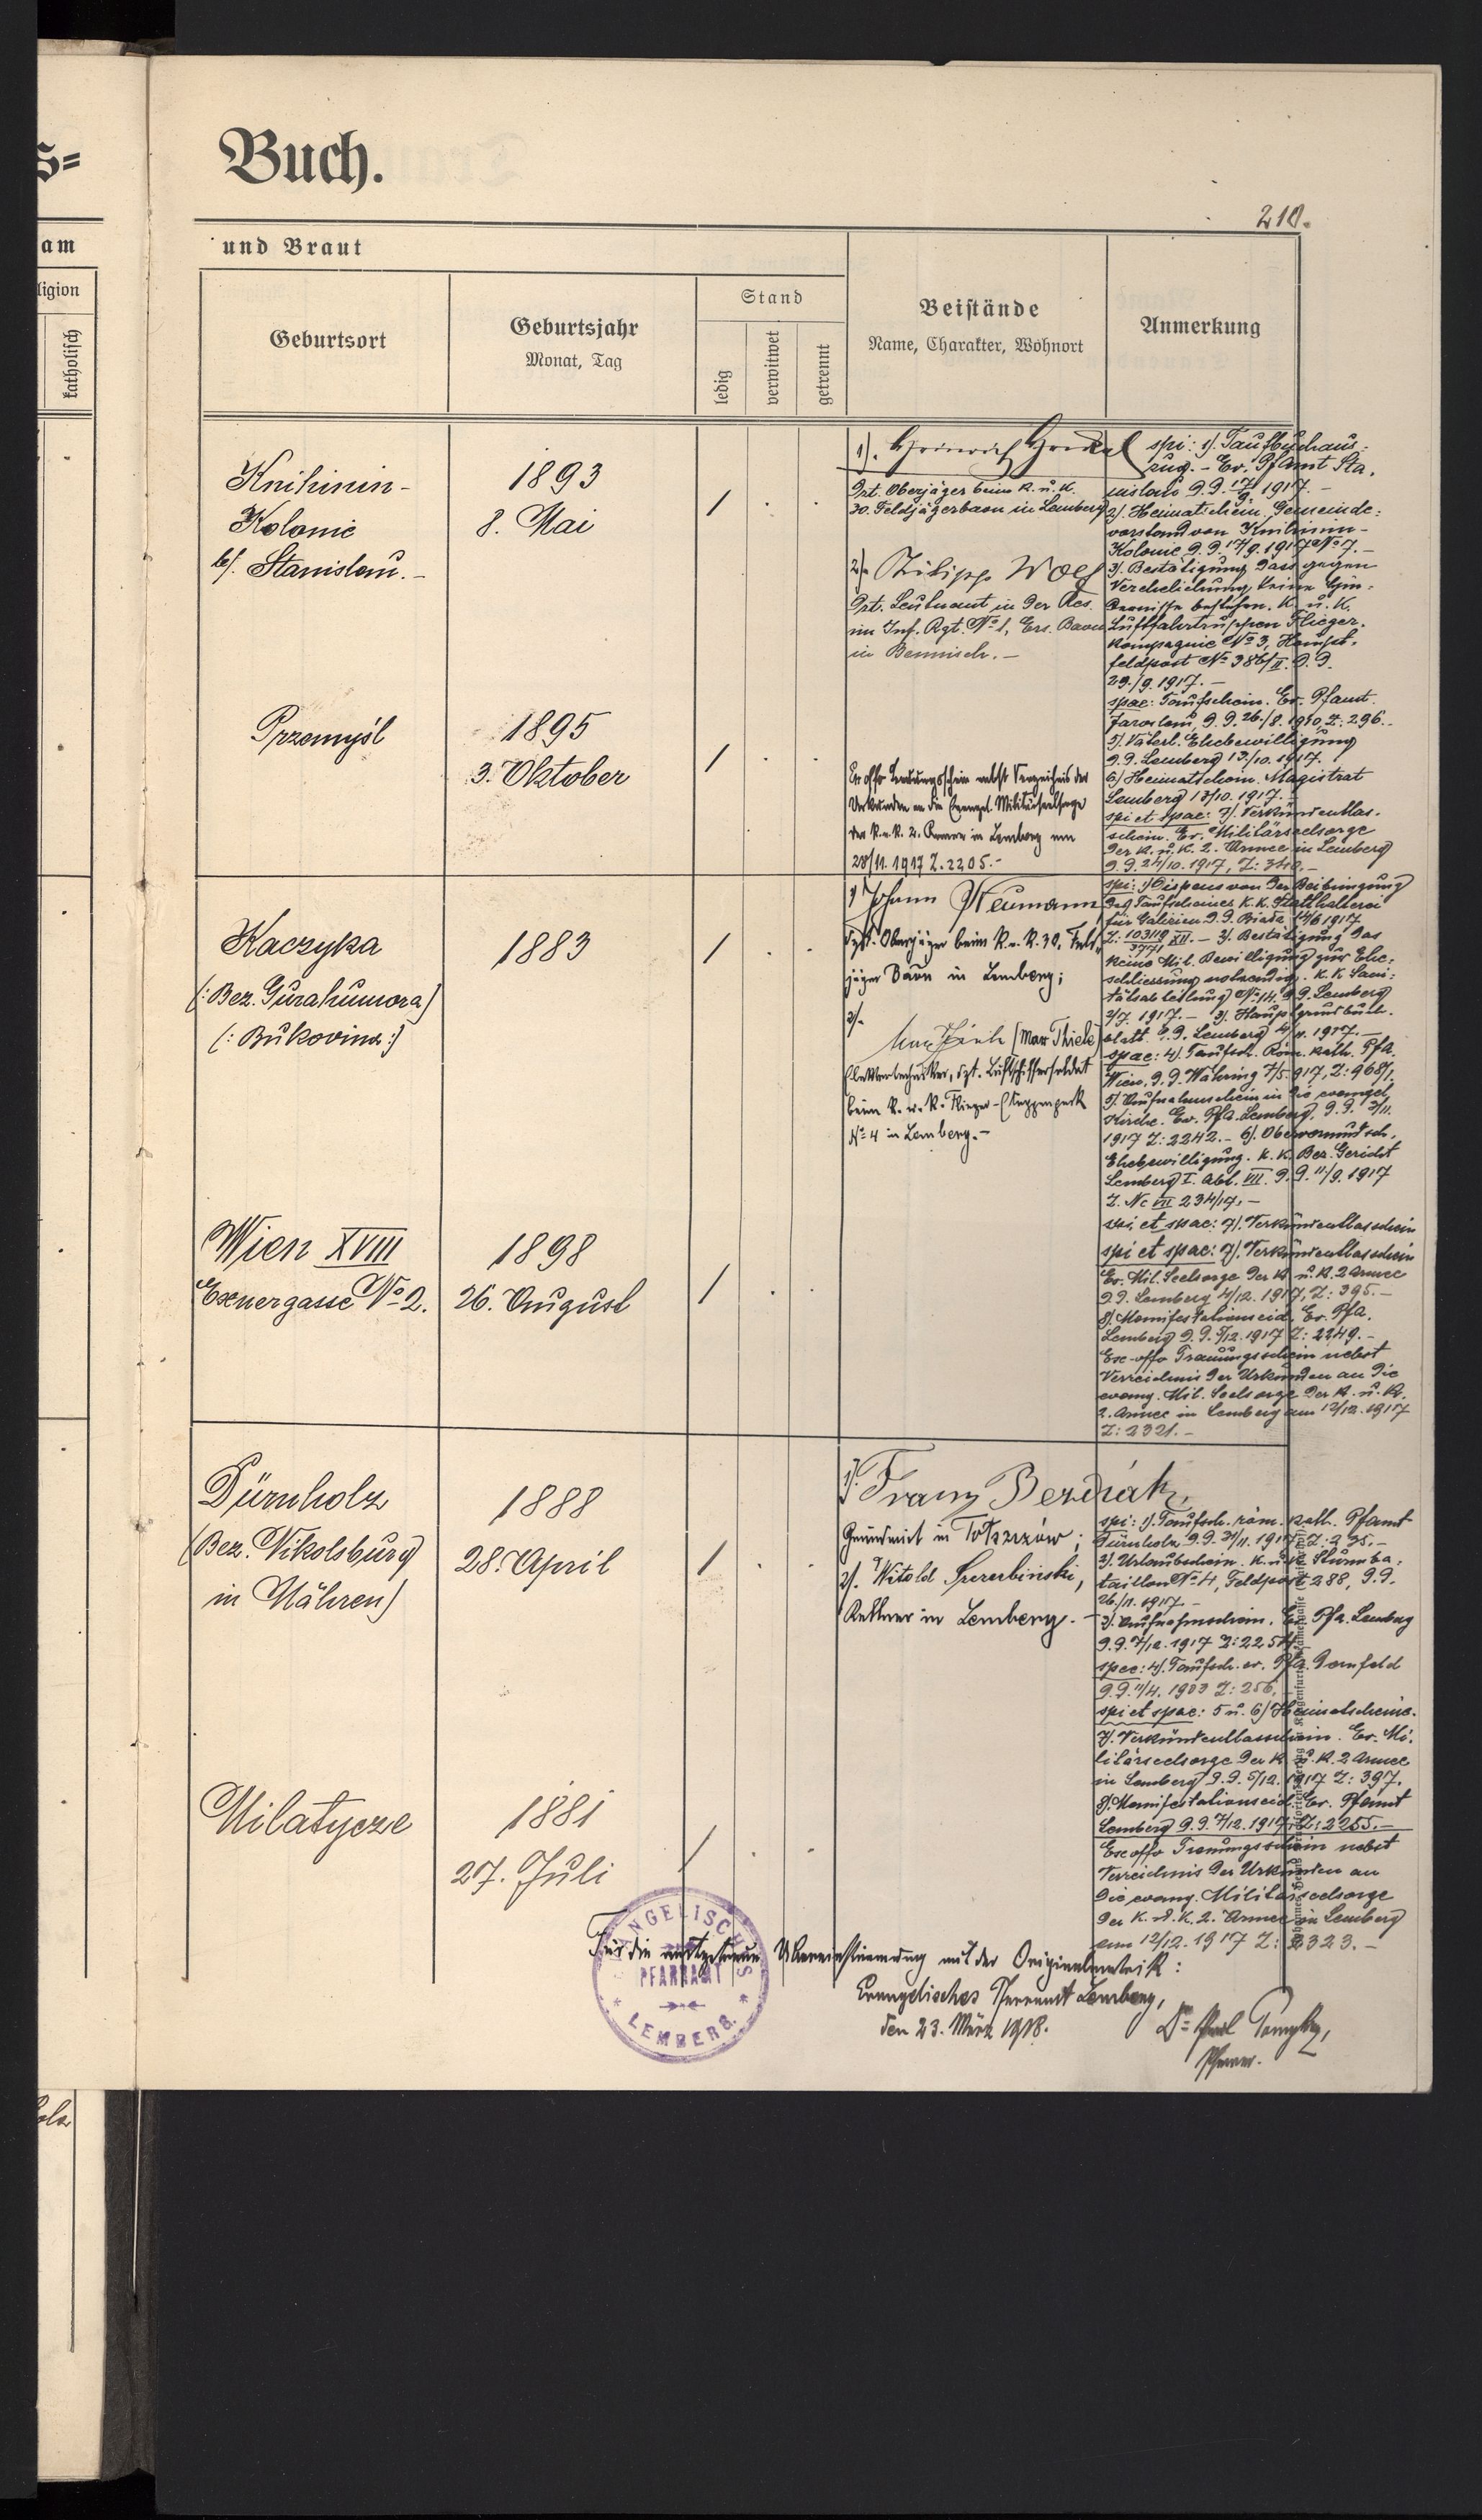 s=
Buch.
210.
am
und Braut
ligion
katholisch
Geburtsort
Geburtsjahr
Monat, Tag
Stand
ledig
verwitwet
getrennt
Beistände
Name, Charakter, Wohnort
Anmerkung
Knihinin-
Kolonie
b/. Stanislau.-
1893
8. Mai
/
1).
Dzt. Oberjäger beim K. u. K.
30. Feldjägerbaon in Lemberg
2).
Dzt. Leutnant in der Res.
im Inf. Rgt. No 1, Ers. Baon
in Bennisch.-
spi: 1). Taufbuchaus-
zug. - Ev. Pfamt Sta-
nislau d.d. 17/9 1917.-
2). Heimatschein. Gemeinde-
vorstand von Knihinin-
Kolonie d.d. 17/9. 1917 No 7.-
3). Bestätigung, dass gegen
Verehelichung keine Hin-
dernisse bestehen. K. u. K.
Luftfahrtruppen Flieger-
kompagnie No 3, Haupt-
feldpost No 386/II. d.d.
29./9. 1917.-
Przemyśl
1895
3. Oktober
/
Ex offo Trauungsschein nebst Verzeichnis der
Urkunden an die Evangel. Militärseelsorge
der K. u. K. 2. Armee in Lemberg am
28/11. 1917 Z. 2205.-
spae: Taufschein. Ev. Pfamt
Jaroslau, d.d. 26./8. 1910, Z: 296.-
5). Väterl. Ehebewilligung
d.d. Lemberg 13/10. 1917.
6) Heimatschein. Magistrat
Lemberg 13/10. 1917.-
spi et spae: 7). Verkündentlas-
schein. Ev. Militärseelsorge
der K. u. K. 2. Armee in Lemberg
d.d. 24/10. 1917, Z: 340.-
Kaczyka
(: Bez. Gurahumora)
(: Bukovina :)
1883
/
1) Johann Neumann,
dzt. Oberjäger beim K. u. K. 30. Feld-
jäger Baon in Lemberg;
2).
(Max Thiele)
Elektrotechniker, dzt. Luftschiffersoldat
beim K. u. K. Flieger-Etappenpark
No 4 in Lemberg.-
spi: 1) Dispens von der Beibringung
des Taufscheines K.K. Statthalterei
für Galizien d.d. Biala 14/6 1917
XII. - 2). Bestätigung das
keine Mil. Bewilligung zur Ehe-
schliessung notwendig. K.K. Sani-
tätsabteilung No 14. d.d. Lemberg
2/7. 1917.- 3). Hauptgrundbuch-
blatt. d.d. Lemberg 4/11. 1917.-
spae: 4). Taufsch. Röm. kath. Pfa.
Wien, d.d. Währing 7/5. 917, Z: 968/1.
5). Aufnahmschein in die evangel.
Kirche. Ev. Pfa. Lemberg, d.d. 3/11.
1917 Z: 2242.- 6). Obervormundsch.
Ehebewilligung. K.K. Bez. Gericht
Lemberg I. Abt. VII. d.d. 11/9. 1917
Z. Nc VII 234/17.-
spi et spae: 7). Verkündentlasschein
Wien XVIII
Exnergasse No 2.
1898
26. August
/
spi et spae: 7). Verkündentlasschein
Ev. Mil. Seelsorge der K. u. K. 2 Armee
d.d. Lemberg 4/12. 1917, Z: 395.-
8). Manifestationseid. Ev. Pfa.
Lemberg d.d. 5/12. 1917 Z: 2249.-
Ex-offo Trauungsschein nebst
Verzeichnis der Urkunden an die
evang. Mil. Seelsorge der K. u. K.
2. Armee in Lemberg am 12/12. 1917
Z: 2321.-
Dürnholz
(Bez. Nikolsburg
in Mähren)
1888
28. April
/
1). Franz Bezdiák,
Grundwirt in
2). Witold Szczerbiński,
Kellner in Lemberg.-
spi: 1). Taufsch. röm. kath. Pfamt
Dürnholz d.d. 21/11. 1917 Z: 235.-
2). Urlaubschein. K. u. K. Sturmba-
taillon No 4, Feldpost 288, d.d.
26./11. 1917.-
3). Aufnahmsschein. Ev. Pfa. Lemberg
d.d. 7/12. 1917 Z: 2254.
spae: 4). Taufsch. ev. Pfa. Dornfeld
d.d. 11/4. 1903 Z: 256.
spi et spae: 5 u. 6) Heimatscheine.
7). Verkündentlasschein. Ev. Mi-
litärseelsorge der K. u. K. 2 Armee
in Lemberg d.d. 5/12. 1917 Z: 397.
8). Manifestationseid. Ev. Pfamt
Lemberg d.d. 7/12. 1917 Z: 2255.-
Milatycze
1881
27. Juli
/
Ex offo Trauungsschein nebst
Verzeichnis der Urkunden an
die evang. Militärseelsorge
der K. u. K. 2. Armee in Lemberg
am 12/12. 1917 Z: 2323.-
EVANGELISCHES
PFARRAMT
LEMBERG
Für die wortgetreue Übereinstimmung mit der Originalmatrik:
Evangelisches Pfarramt Lemberg,
den 23. März 1918.
Pfarrer.